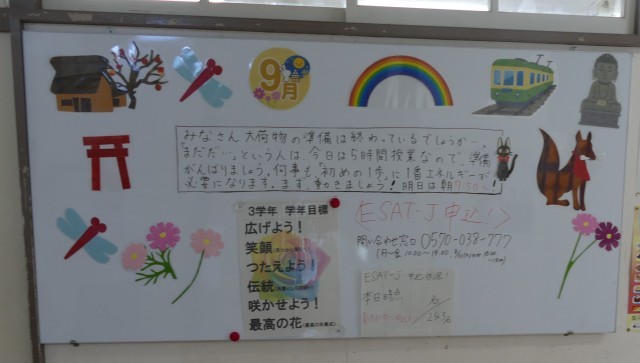 9
月
みなさん大荷物の準備は終わっているでしょうか…。
「まだだ…」という人は、今日は5時間授業なので、準備
がんばりましょう。何事も「初めの1歩」に1番エネルギーが
必要になります。まず、動きましょう！明日は朝7:50〜！
3学年 学年目標
広げよう！
笑顔
つたえよう！
伝統
咲かせよう！
最高の花
ESAT-J 申込
問い合わせ窓口 0570-038-777
ESAT-J
本日時点